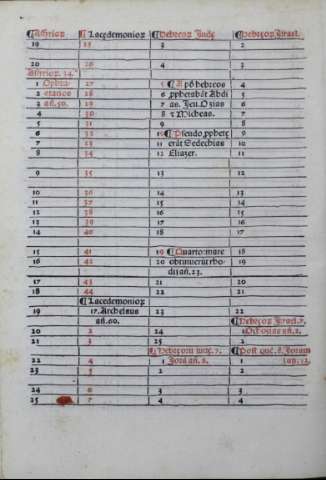 ¶Assirioꝝ ¶Lacedemonioꝝ ¶Hebreoꝝ Jude ¶Hebreoꝝ Israel.
19 25 3 2
20 26 4 3
Assirioꝝ. 34.
1 Ophra- 27 5 ¶Apđ hebreos 4
2 etanes 28 6 ꝓphetabāt Abdi 5
3 añ. 50. 29 7 as. Jeu. Ozias 6
4 30 8 ⁊ Micheas. 7
5 31 9 8
6 32 10 ¶Pseudo ꝓphete 9
7 33 11 erāt Sedechias 10
8 34 12 Eliazer. 11
9 35 13 12
10 36 14 13
11 37 15 14
12 38 16 15
13 39 17 16
14 40 18 17
15 41 19 ¶Quarto mare 18
16 42 20 obtinuerūt rho- 19
dij añ. 23.
17 43 21 20
18 44 22 21
¶Lacedemonioꝝ
19 17. Archelaus 23 22
añ. 60. ¶Hebreoꝝ Israel. 7.
20 2 24 1 añ. 2.
21 3 25 2
¶Hebreoꝝ iude. 7. ¶Post quē. 8. Joram
22 4 1 Jorā añ. 8. 1 añ. 12.
23 5 2 2
24 6 3 3
25 7 4 4